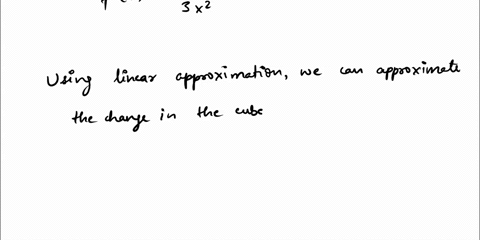 3x²
Using linear approximation, we can approximate
the change in the cube